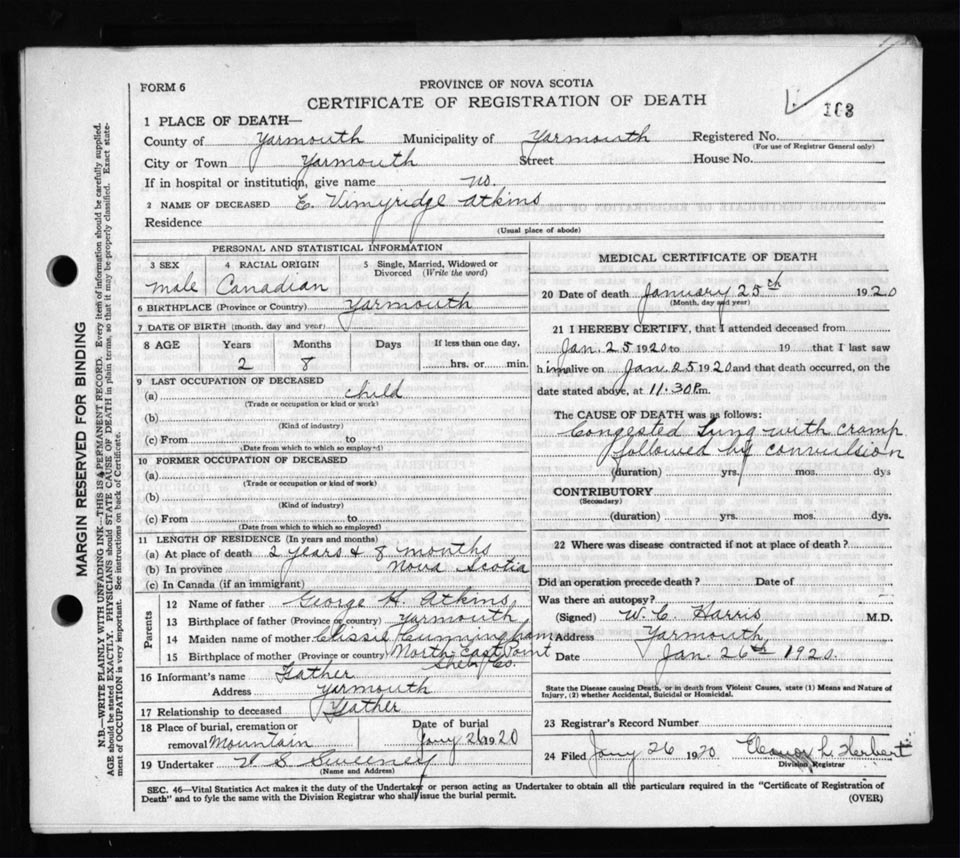 FORM 6
PROVINCE OF NOVA SCOTIA
CERTIFICATE OF REGISTRATION OF DEATH
163
1 PLACE OF DEATH—
County of Yarmouth Municipality of Yarmouth Registered No.
(For use of Registrar General only)
City or Town Yarmouth Street House No.
If in hospital or institution, give name no.
2 NAME OF DECEASED E. Vimyridge Atkins
Residence
(Usual place of abode)
PERSONAL AND STATISTICAL INFORMATION
3 SEX 4 RACIAL ORIGIN 5 Single, Married, Widowed or
Divorced (Write the word)
Male Canadian
6 BIRTHPLACE (Province or Country) Yarmouth
7 DATE OF BIRTH (month, day and year)
8 AGE Years Months Days If less than one day,
2 8 hrs. or min.
9 LAST OCCUPATION OF DECEASED
(a) Child
(Trade or occupation or kind or work)
(b)
(Kind of industry)
(c) From to
(Date from which to which so employed)
10 FORMER OCCUPATION OF DECEASED
(a)
(Trade or occupation or kind of work)
(b)
(Kind of industry)
(c) From to
(Date from which to which so employed)
11 LENGTH OF RESIDENCE (In years and months)
(a) At place of death 2 years & 8 months
(b) In province Nova Scotia
(c) In Canada (if an immigrant)
Parents
12 Name of father George H. Atkins
13 Birthplace of father (Province or country) Yarmouth
14 Maiden name of mother Clissie Cunningham
15 Birthplace of mother (Province or country) North East Point
Shel. Co.
16 Informant's name Father
Address Yarmouth
17 Relationship to deceased Father
18 Place of burial, cremation or Date of burial
removal Mountain Jany 26 1920
19 Undertaker V S Sweeney
(Name and Address)
MEDICAL CERTIFICATE OF DEATH
20 Date of death January 25th 1920
(Month, day and year)
21 I HEREBY CERTIFY, that I attended deceased from
Jan. 25 1920 to 19 that I last saw
him alive on Jan. 25 1920 and that death occurred, on the
date stated above, at 11.30P.m.
The CAUSE OF DEATH was as follows:
Congested Lung with cramp
followed by convulsion
(duration) yrs. mos. dys
CONTRIBUTORY
(Secondary)
(duration) yrs. mos. dys.
22 Where was disease contracted if not at place of death?
Did an operation precede death? Date of
Was there an autopsy?
(Signed) W. C. Harris M.D.
Address Yarmouth
Date Jan. 26th 1920.
State the Disease causing Death, or in death from Violent Causes, state (1) Means and Nature of
Injury, (2) whether Accidental, Suicidal or Homicidal.
23 Registrar's Record Number
24 Filed Jany 26 1920 Eleanor L. Herbert
Division Registrar
SEC. 46—Vital Statistics Act makes it the duty of the Undertaker or person acting as Undertaker to obtain all the particulars required in the "Certificate of Registration of
Death" and to fyle the same with the Division Registrar who shall issue the burial permit.
(OVER)
MARGIN RESERVED FOR BINDING
N.B.—WRITE PLAINLY WITH UNFADING INK—THIS IS A PERMANENT RECORD. Every item of information should be carefully supplied.
AGE should be stated EXACTLY. PHYSICIANS should STATE CAUSE OF DEATH in plain terms, so that it may be properly classified. Exact state-
ment of OCCUPATION is very important. See instructions on back of Certificate.